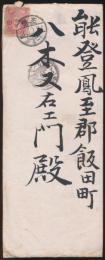 能登鳳至郡飯田町
八木又右エ門殿